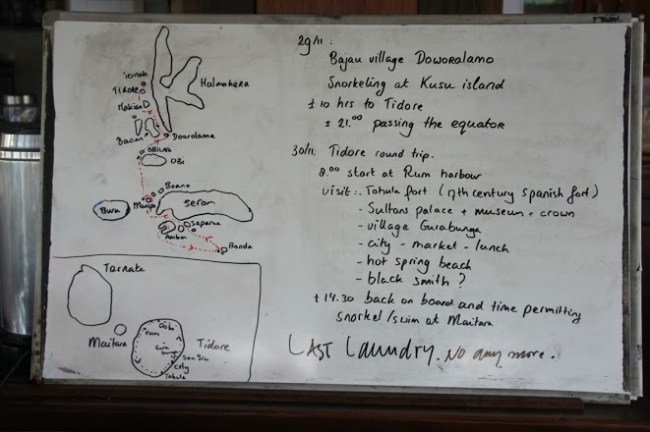 Ternate
Tidore
Halmahera
Makian
Bacan
Doorolama
Obi
Boano
Manipa
Seram
Buru
Saparua
Ambon
Banda
Tarnate
Maitara
Tidore
Cobi
Rum
San Siu
City
Tohula
29/11:
Bajau village Doworalamo
Snorkeling at Kusu island
± 10 hrs to Tidore
± 21.00 passing the equator
30/11. Tidore round trip.
8.00 start at Rum harbour
visit:. Tohula fort (17th century Spanish fort)
- Sultans palace + museum + crown
- village Gurabunga
- city - market - lunch
- hot spring beach
- black smith ?
± 14.30 back on board and time permitting
snorkel/swim at Maitara
LAST Laundry. No any more.